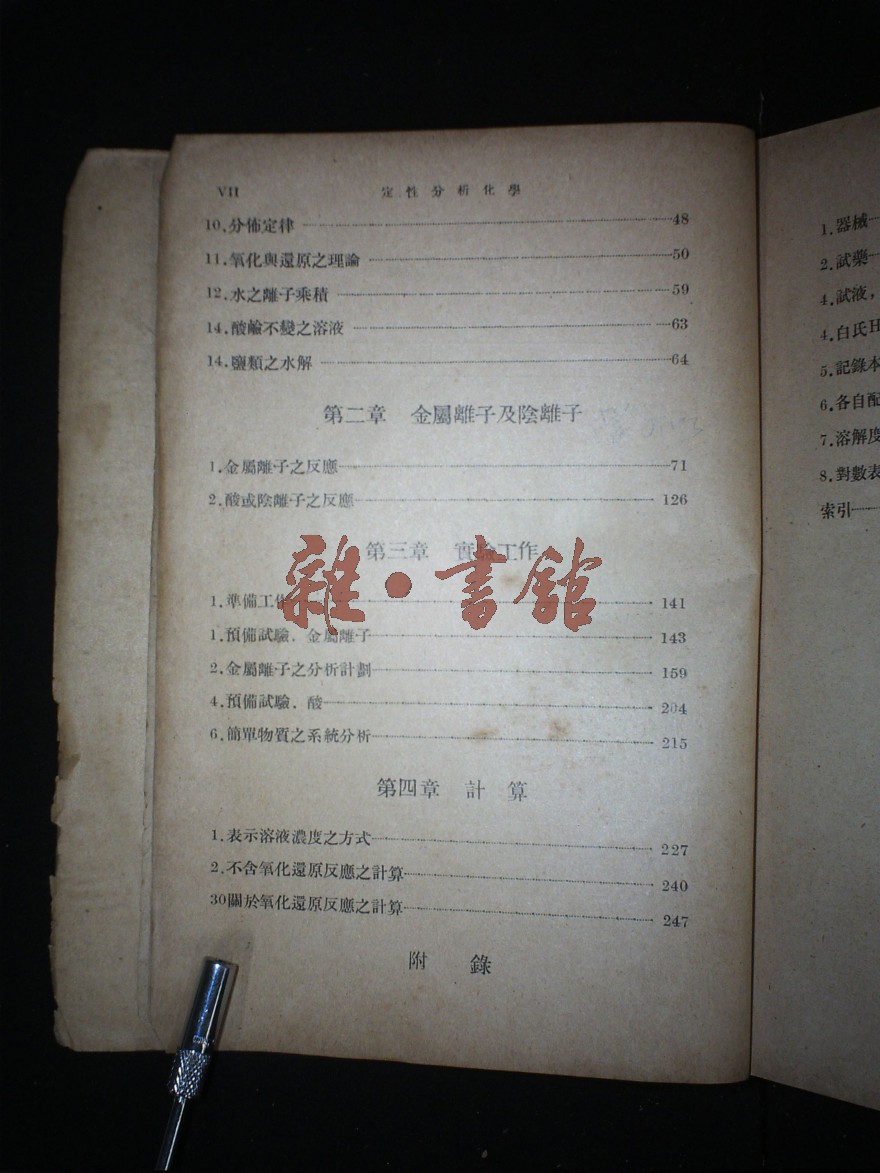 VII 定性分析化學
10.分佈定律 48
11.氧化與還原之理論 50
12.水之離子乘積 59
14.酸鹼不變之溶液 63
14.鹽類之水解 64
第二章 金屬離子及陰離子
1.金屬離子之反應 71
2.酸或陰離子之反應 126
第三章 實驗工作
1.準備工作 141
1.預備試驗、金屬離子 143
2.金屬離子之分析計劃 159
4.預備試驗、酸 204
6.簡單物質之系統分析 215
第四章 計算
1.表示溶液濃度之方式 227
2.不含氧化還原反應之計算 240
30關於氧化還原反應之計算 247
附錄
雜·書館
1.器械
2.試藥
4.試液，
4.白氏
5.記錄本
6.各自配
7.溶解度
8.對數表
索引